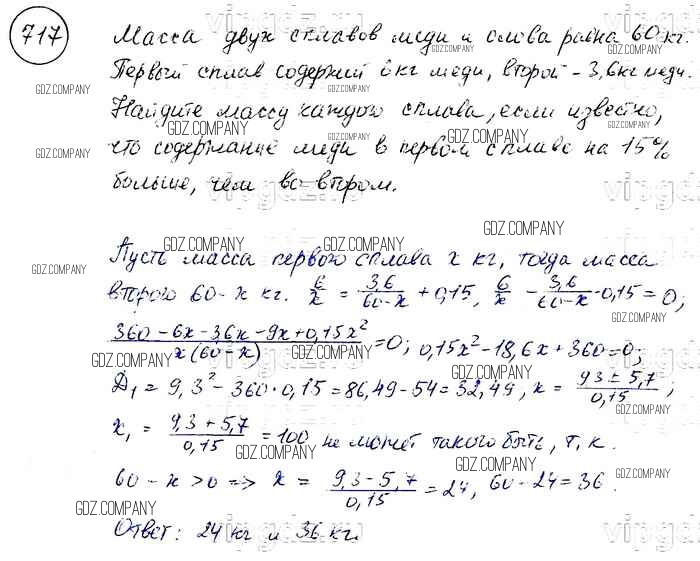 717
Масса двух сплавов меди и олова равна 60 кг.
Первый сплав содержит 6 кг меди, второй – 3,6 кг меди.
Найдите массу каждого сплава, если известно,
что содержание меди в первом сплаве на 15%
больше, чем во втором.
Пусть масса первого сплава x кг, тогда масса
второго 60-x кг. 6/x = 3,6/(60-x) + 0,15, 6/x - 3,6/(60-x) - 0,15 = 0;
(360-6x-3,6x-9x+0,15x²)/(x(60-x)) = 0; 0,15x²-18,6x+360=0;
Д₁ = 9,3² - 360·0,15 = 86,49-54 = 32,49, x = (9,3±5,7)/0,15;
x₁ = (9,3+5,7)/0,15 = 100 не может такого быть, т.к.
60-x>0 => x = (9,3-5,7)/0,15 = 24, 60-24=36.
Ответ: 24 кг и 36 кг.
GDZ.COMPANY
vipgdz.ru